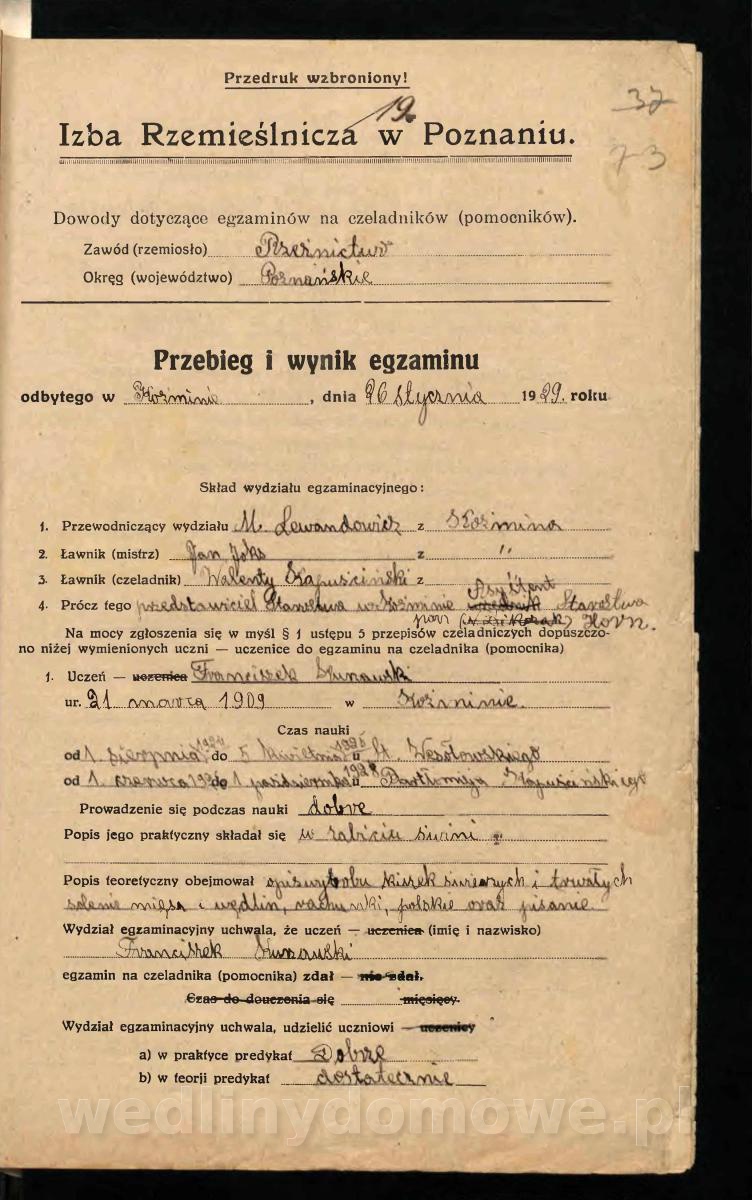 Przedruk wzbroniony!
19.
37
73
Izba Rzemieślnicza w Poznaniu.
Dowody dotyczące egzaminów na czeladników (pomocników).
Zawód (rzemiosło) Rzeźnictwo
Okręg (województwo) Poznańskie
Przebieg i wynik egzaminu
odbytego w Koźminie, dnia 26 stycznia 1929. roku
Skład wydziału egzaminacyjnego:
1. Przewodniczący wydziału M. Lewandowicz z Koźmina
2. Ławnik (mistrz) Jan Joks z "
3. Ławnik (czeladnik) Walenty Kapuściński z
Asystent
4. Prócz tego przedstawiciel Starostwa w Koźminie Starostwa
pan Horn.
Na mocy zgłoszenia się w myśl § 1 ustępu 5 przepisów czeladniczych dopuszczo-
no niżej wymienionych uczni — uczenice do egzaminu na czeladnika (pomocnika)
1. Uczeń — uczenica Franciszek
ur. 21 marca 1909 w Koźminie.
Czas nauki
od 1 sierpnia 1924 do 5 kwietnia 1925 u St. Wesołowskiego
od 1 czerwca do 1 października 1928 u Bartłomieja Kapuścińskiego
Prowadzenie się podczas nauki dobre
Popis jego praktyczny składał się w zabiciu świni
Popis teoretyczny obejmował opis wyrobu kiszek świeżych i trwałych
solenie mięsa i wędlin, rachunki, polskie oraz pisanie.
Wydział egzaminacyjny uchwala, że uczeń — uczenica (imię i nazwisko)
Franciszek
egzamin na czeladnika (pomocnika) zdał — nie zdał.
Czas do douczenia się miesięcy.
Wydział egzaminacyjny uchwala, udzielić uczniowi — uczenicy
a) w praktyce predykat Dobrze
b) w teorji predykat dostatecznie
wedlinydomowe.pl